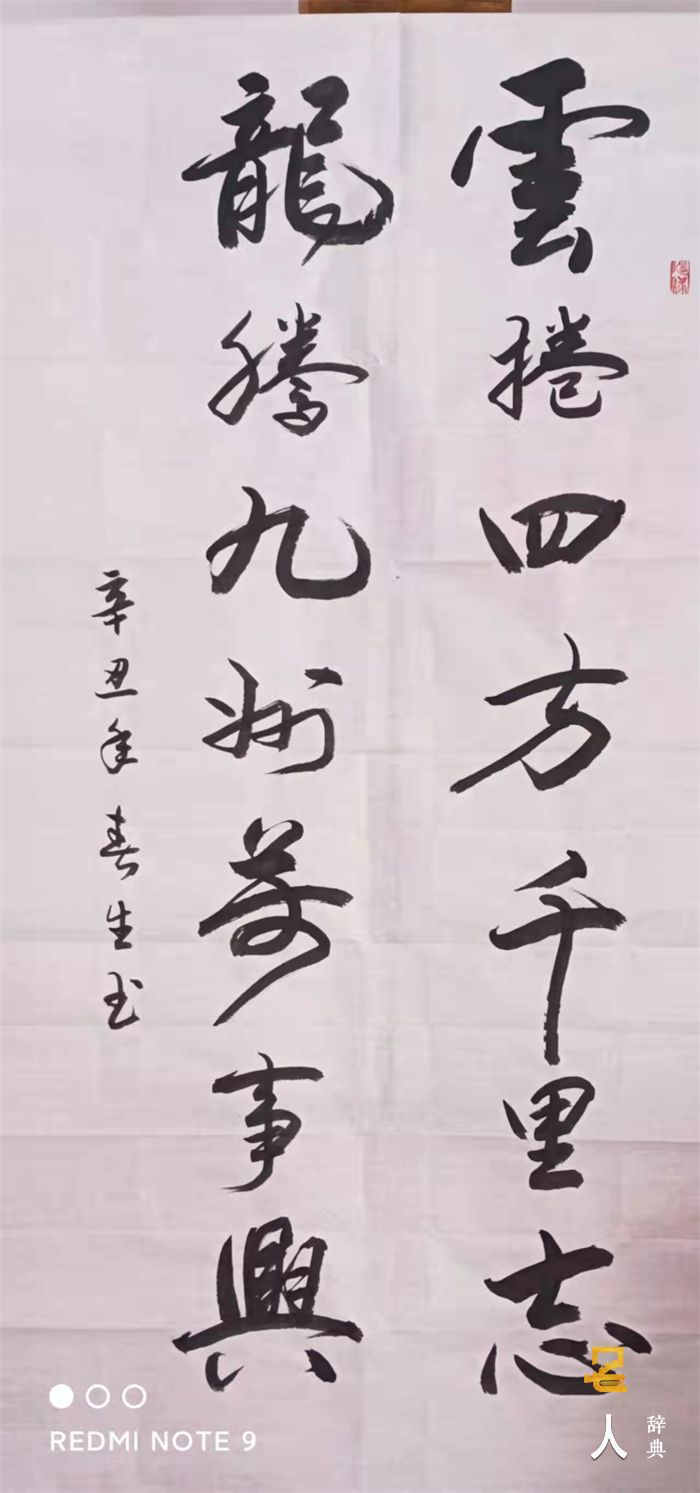 雲捲四方千里志
龍騰九州萬事興
辛丑年春生书
REDMI NOTE 9
名人
辞典